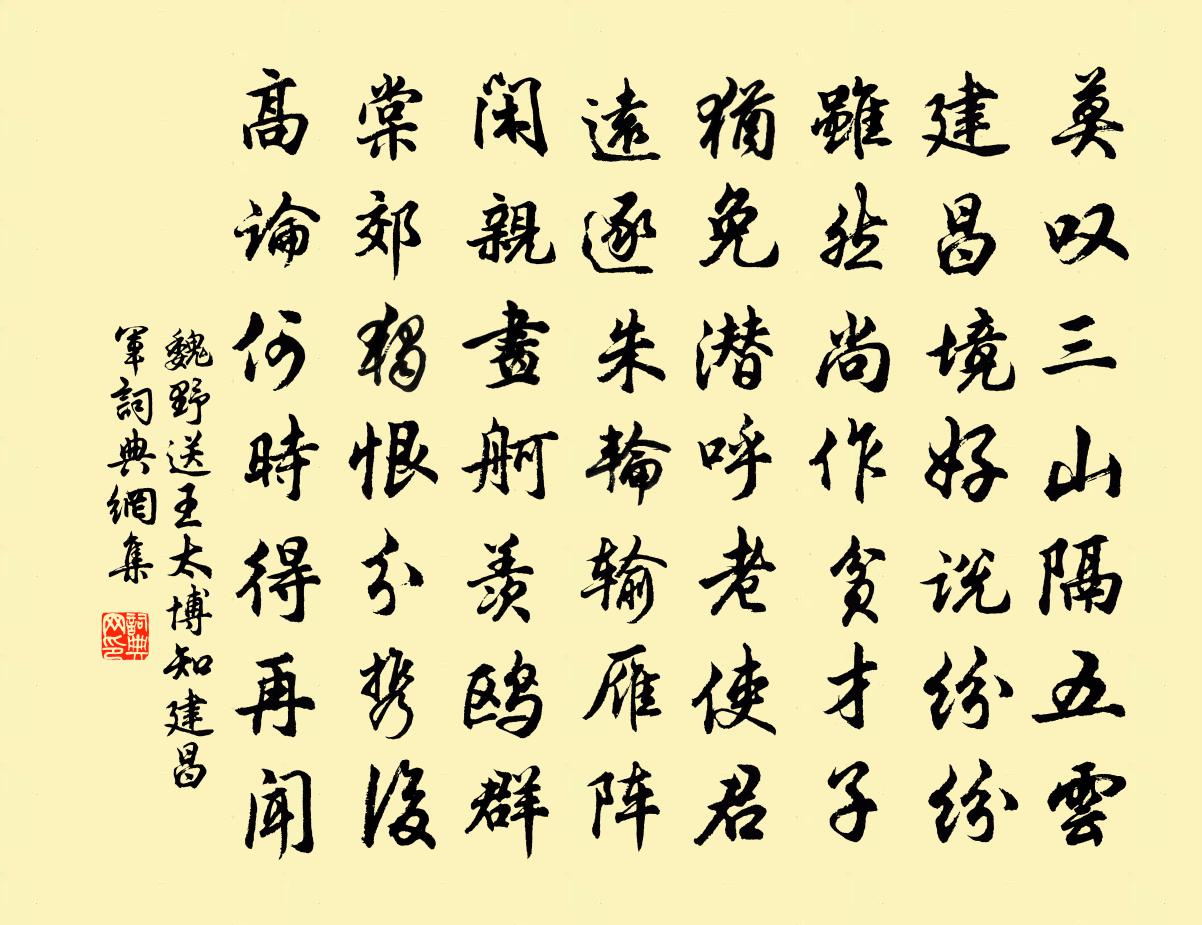 莫叹三山隔五雲
建昌境好说纷纷
雖然尚作貧才子
猶免潜呼老使君
遠逐朱輪输雁阵
闲親畫舸羨鸥群
棠郊獨恨分携後
高論何時得再闻
魏野送王太博知建昌
軍詞典網集
詞典
网印